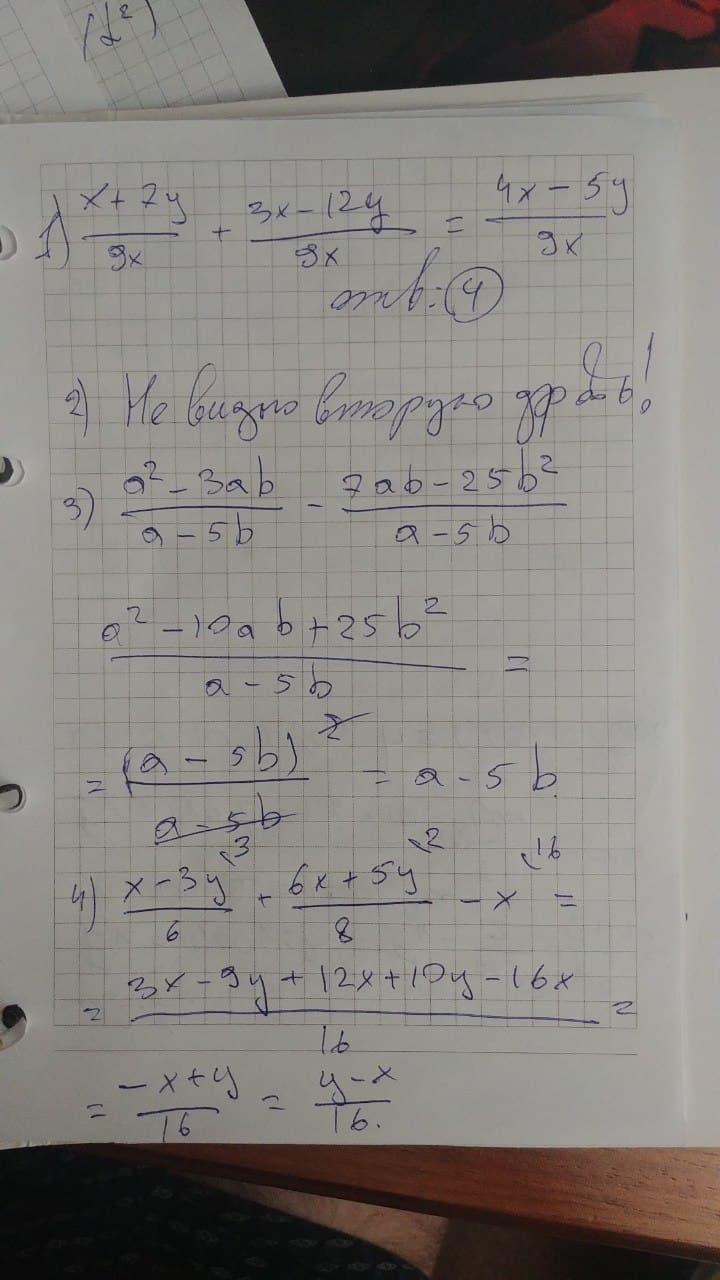 (L²)
1) x+7y/9x + 3x-12y/9x = 4x-5y/9x
отв: 4
2) Не видно вторую дробь!
3) a²-3ab/a-5b - 7ab-25b²/a-5b
a²-10ab+25b²/a-5b =
= (a-5b)²/a-5b = a-5b
4) x-3y\3/6 + 6x+5y\2/8 - x\16 =
= 3x-9y+12x+10y-16x/16 =
= -x+y/16 = y-x/16.